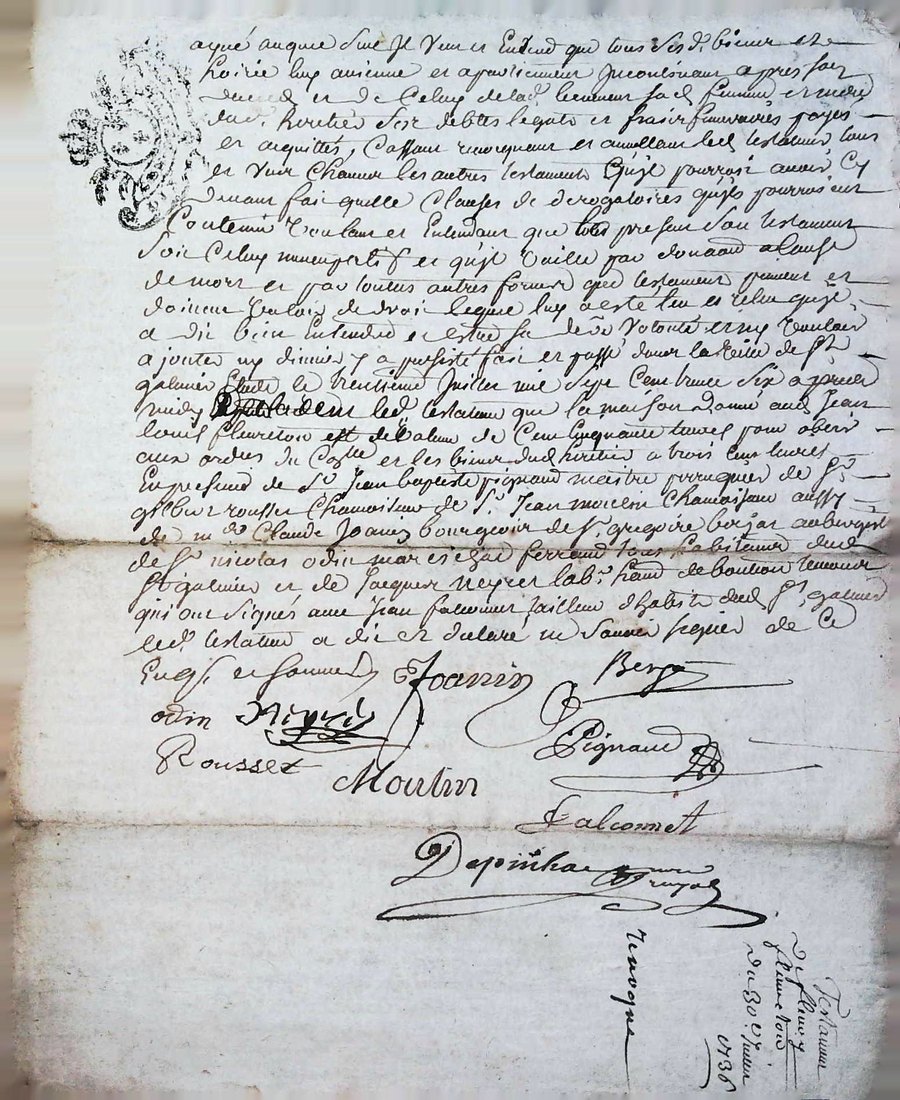 ayné auquel sus Il veut et Entend que tous sesd. biens et
hoirie luy avienne et apartiennent Incontinant apres son
deced et de Celuy delad. sad. femme et
dud. heritier ses debtes legats et frais funeraires payes
et aquittés, Cassant revoquant et annullant led. testateur tous
et Uns Chacuns les autres testaments Quil pourroit avoir Cy
devant fait quelle Clauses de derogatoires quils pourroient
Contenir Voulant et Entendant que le present son testament
soit Celuy nuncupatif et quil vaille par donnaon a Cause
de mort et par toutes autres formes que testament peuvent et
doivent valoir de droit lequel luy a este leu et releu quil
a dit bien Entendre et estre sa de. Volonté et ny vouloir
ajouter ny diminuer y a persisté fait et passé dans la ville de St.
galmier Etude le trentieme Juillet mil sept Cent trente six apres
midy led. testateur que la maison donné aud. Jean
louis fleureton est de valeur de Cent Cinquante livres pour obeir
aux ordres du et les biens dud. heritier a trois Cent livres
En presence de Sr. Jean baptiste pignaud maitre perruquier de Sr.
gilbert rousset Chamoiseur de Sr. Jean moulin Chamoiseur aussy
de me. Claude Joanin bourgeois de Sr. gregoire aubergiste
de Sr. nicolas odin mareschal ferrand tous habitants dud.
St galmier et de Jacques neyret labr. hant. de bouthon temoins
qui ont signés avec Jean falconnet tailleur dhabits dud. St. galmier
led. testateur a dit et declaré ne savoir signer de Ce
Enqs. et sommé Joanin
odin Neyret Pignaud
Rousset Moulin
falconnet
Depinhac
revoque
Testament
De fleury
fleureton
Du 30e Juillet
1736